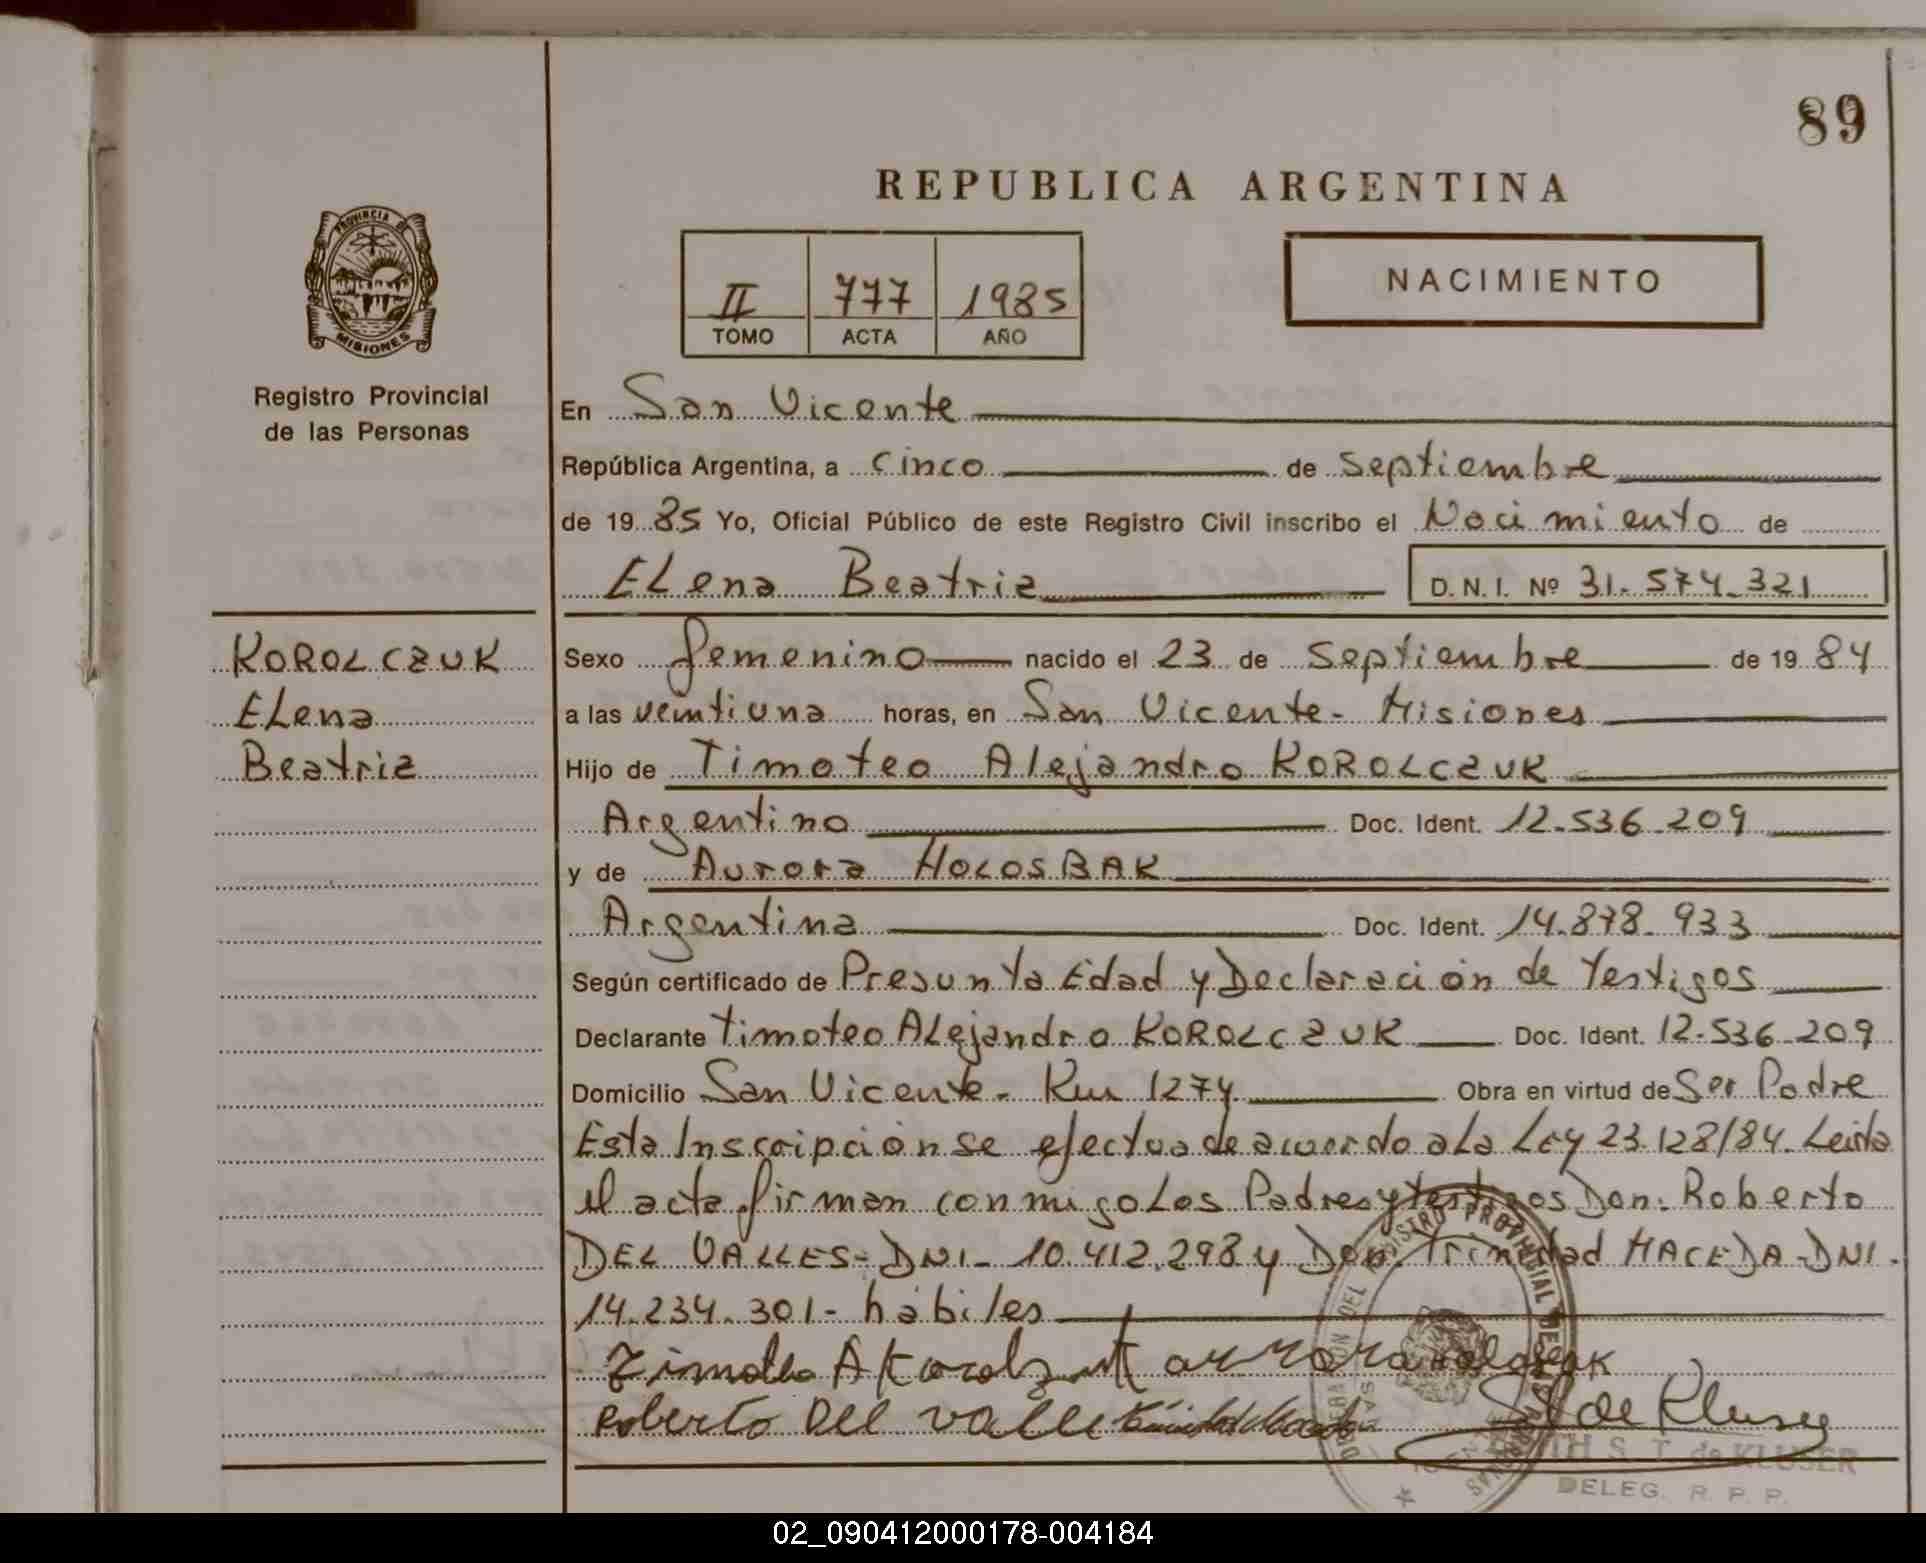 89
REPUBLICA ARGENTINA
PROVINCIA DE
MISIONES
Registro Provincial
de las Personas
II 777 1985
TOMO ACTA AÑO
NACIMIENTO
En San Vicente
República Argentina, a cinco de septiembre
de 1985 Yo, Oficial Público de este Registro Civil inscribo el Nacimiento de
ELena Beatriz D.N.I. Nº 31.574.321
KOROLCZUK
ELena
Beatriz
Sexo femenino nacido el 23 de septiembre de 1984
a las veintiuna horas, en San Vicente - Misiones
Hijo de Timoteo Alejandro KOROLCZUK
Argentino Doc. Ident. 12.536.209
y de Aurora HOLOSBAK
Argentina Doc. Ident. 14.878.933
Según certificado de Presunta Edad y Declaración de Testigos
Declarante Timoteo ALejandro KOROLCZUK Doc. Ident. 12.536.209
Domicilio San Vicente - Km 1274 Obra en virtud de Ser Padre
Esta Inscripción se efectua de acuerdo a La Ley 23.128/84. Leida
el acta firman conmigo Los Padres y testigos Don: Roberto
DEL VALLES - DNI - 10.412.298 y Don. Trinidad MACEDA - DNI -
14.234.301 - hábiles
Timoteo A Korolczuk aurora holosbak
Roberto Del valle
de Kluser
S. T. de KLUSER
DELEG. R. P. P.
02_090412000178-004184